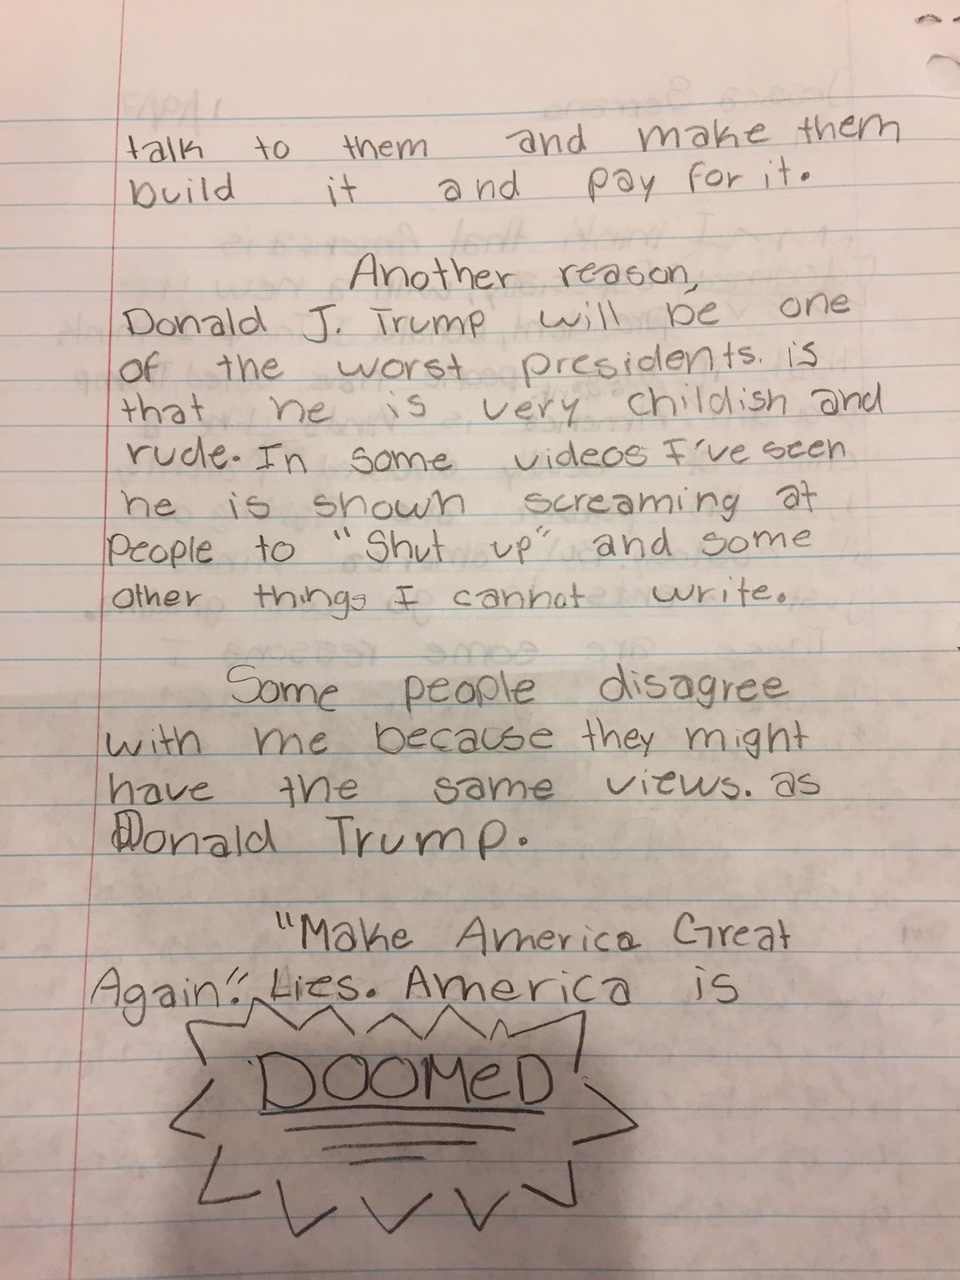 talk to them and make them
build it and pay for it.
Another reason,
Donald J. Trump will be one
of the worst presidents. is
that he is very childish and
rude. In some videos I've seen
he is shown screaming at
people to "Shut up" and some
other things I cannot write.
Some people disagree
with me because they might
have the same views. as
Donald Trump.
"Make America Great
Again". Lies. America is
DOOMeD